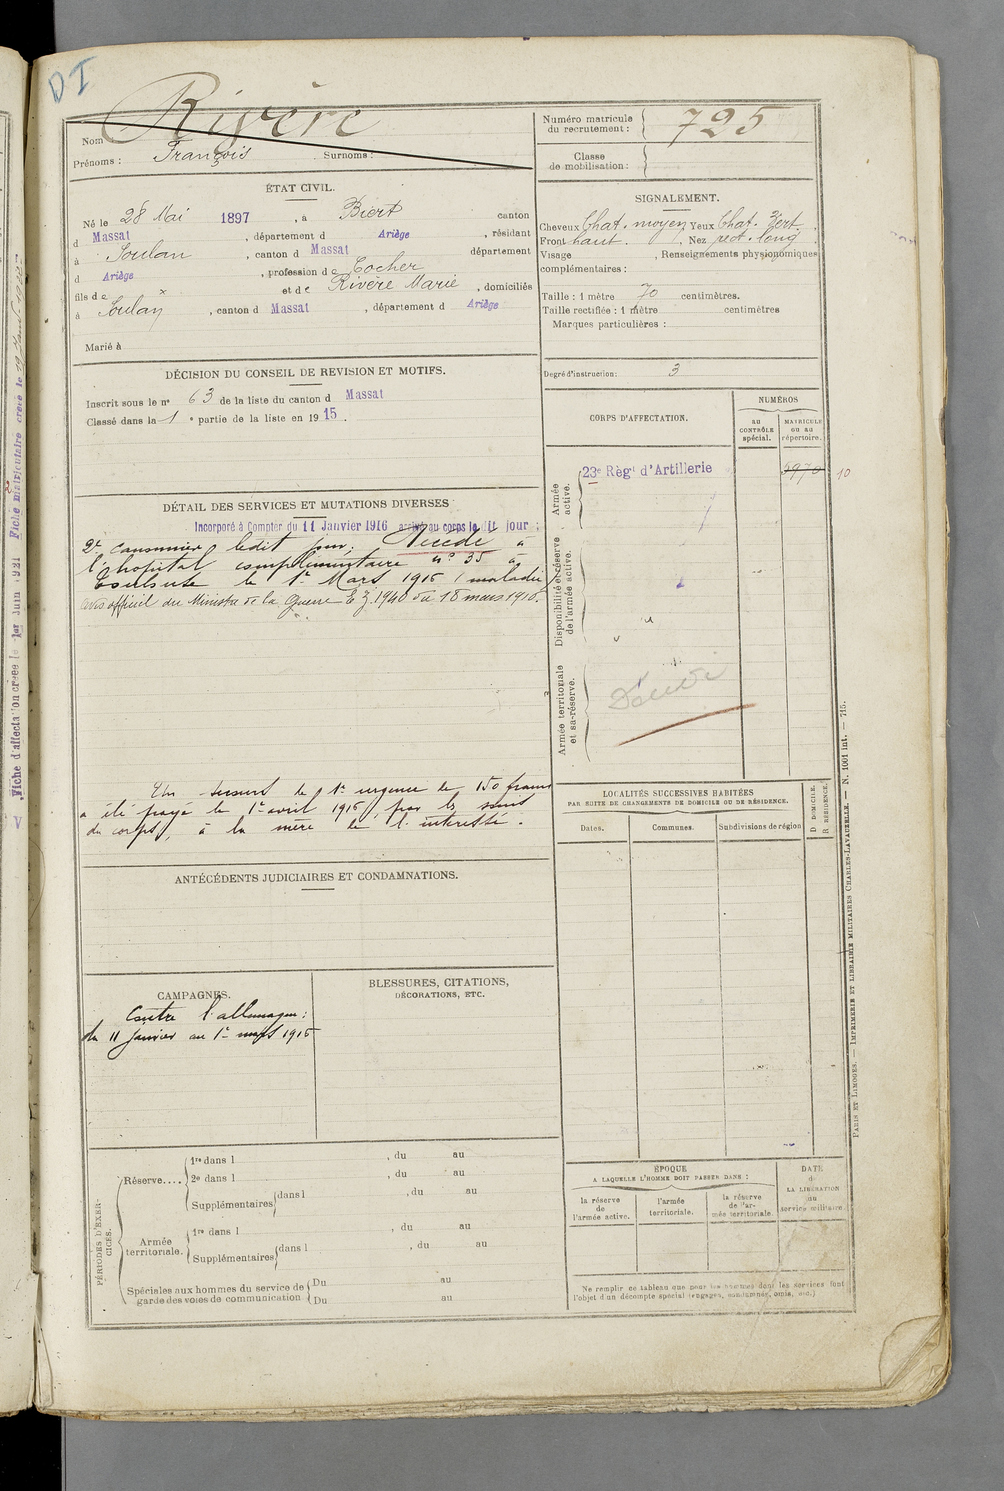 DI
Nom Rivère
Prénoms : François Surnoms :
Numéro matricule du recrutement : 725
Classe de mobilisation :
ÉTAT CIVIL.
Né le 28 Mai 1897, à Biert canton
d Massat, département d Ariège, résidant
à Soulan, canton d Massat département
d Ariège, profession de Cocher
fils de x et de Rivère Marie, domiciliés
à Soulan, canton d Massat, département d Ariège
Marié à
SIGNALEMENT.
Cheveux Chat. moyen Yeux Chat. Vert.
Front haut. Nez rect. long.
Visage , Renseignements physionomiques
complémentaires :
Taille : 1 mètre 70 centimètres.
Taille rectifiée : 1 mètre centimètres
Marques particulières :
Degré d'instruction : 3
DÉCISION DU CONSEIL DE REVISION ET MOTIFS.
Inscrit sous le n° 63 de la liste du canton d Massat
Classé dans la 1e partie de la liste en 1915.
CORPS D'AFFECTATION.
NUMÉROS
au CONTRÔLE spécial.
MATRICULE ou au répertoire.
Armée active.
23e Règt d'Artillerie 5970 10
Disponibilité et réserve de l'armée active.
Armée territoriale et sa réserve.
Décédé
DÉTAIL DES SERVICES ET MUTATIONS DIVERSES
Incorporé à Compter du 11 Janvier 1916 arrivé au corps le dit jour ;
2e canonnier ledit jour ; Décédé à
l'hopital complémentaire n° 35 à
Toulouse le 1r Mars 1916 (maladie
avis officiel du Ministre de la Guerre E Z. 1940 du 18 mars 1916.
Un secours de 1re urgence de 150 francs
a été payé le 1er avril 1916, par les soins
du corps, à la mère de l'intéressé.
ANTÉCÉDENTS JUDICIAIRES ET CONDAMNATIONS.
CAMPAGNES.
Contre l'allemagne :
du 11 janvier au 1r mars 1916
BLESSURES, CITATIONS,
DÉCORATIONS, ETC.
LOCALITÉS SUCCESSIVES HABITÉES
PAR SUITE DE CHANGEMENTS DE DOMICILE OU DE RÉSIDENCE.
Dates. Communes. Subdivisions de région D. DOMICILE. R. RÉSIDENCE.
PÉRIODES D'EXERCICES.
Réserve....
1re dans l , du au
2e dans l , du au
Supplémentaires dans l , du au
Armée territoriale.
1re dans l , du au
Supplémentaires dans l , du au
Spéciales aux hommes du service de garde des voies de communication
Du au
Du au
ÉPOQUE
A LAQUELLE L'HOMME DOIT PASSER DANS :
la réserve de l'armée active.
l'armée territoriale.
la réserve de l'armée territoriale.
DATE de LA LIBÉRATION du service militaire
Ne remplir ce tableau que pour les hommes dont les services font
l'objet d'un décompte spécial (engagés, condamnés, omis, etc.)
PARIS ET LIMOGES. — IMPRIMERIE ET LIBRAIRIE MILITAIRES CHARLES-LAVAUZELLE. — N. 1001 int. — 715.
Fiche d'affectation créée le 1er Juin 1921 Fiche matriculaire créée le